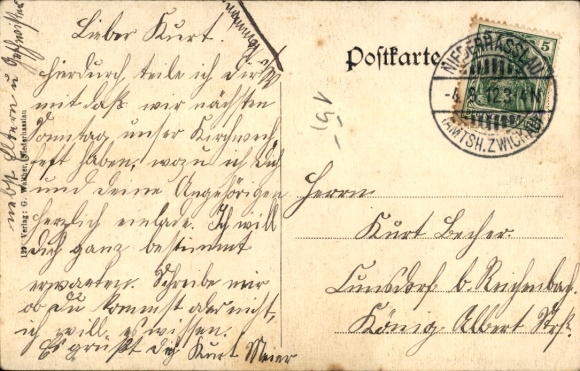 Lieber Kurt.
hierdurch teile ich Dir
mit daß wir nächsten
Sonntag unser Kirchweih-
fest haben, wozu ich Dich
und deine Angehörigen
herzlich einlade. Ich will
Dich ganz bestimmt
erwarten. Schreibe mir
ob Du kommst oder nicht,
ich will es wissen.
Es grüßt Dich Kurt Meier
nebst Eltern u Geschwister
129 Verlag: G. Walther, Niederhasslau
Postkarte
5
NIEDERHASSLAU
-4. 12.3-4N
(AMTSH. ZWICKAU)
15,-
Herrn
Kurt Becher.
Cunsdorf b. Reichenbach.
König Albert Str.